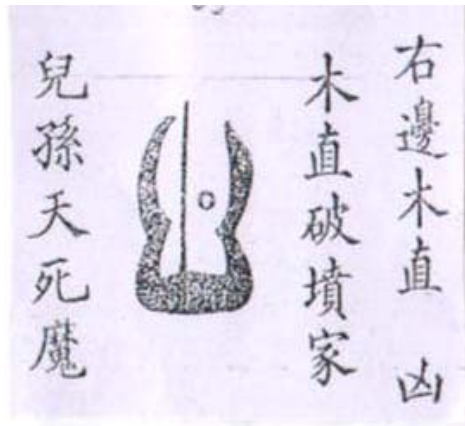 右邊木直 凶
木直破墳家
兒孫天死魔